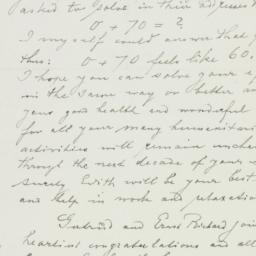 asked to solve in their addresses
0 + 70 = ?
I myself could answer that
thus: 0 + 70 feels like 60.
I hope you can solve your
in the same way or better an
your good health and wonderful
for all your many humanitari
activities will remain unchan
through the next decade of your
surely Edith will be your best
and help in work and relaxation
Gertrud and Ernst Richard join
heartiest congratulations and all